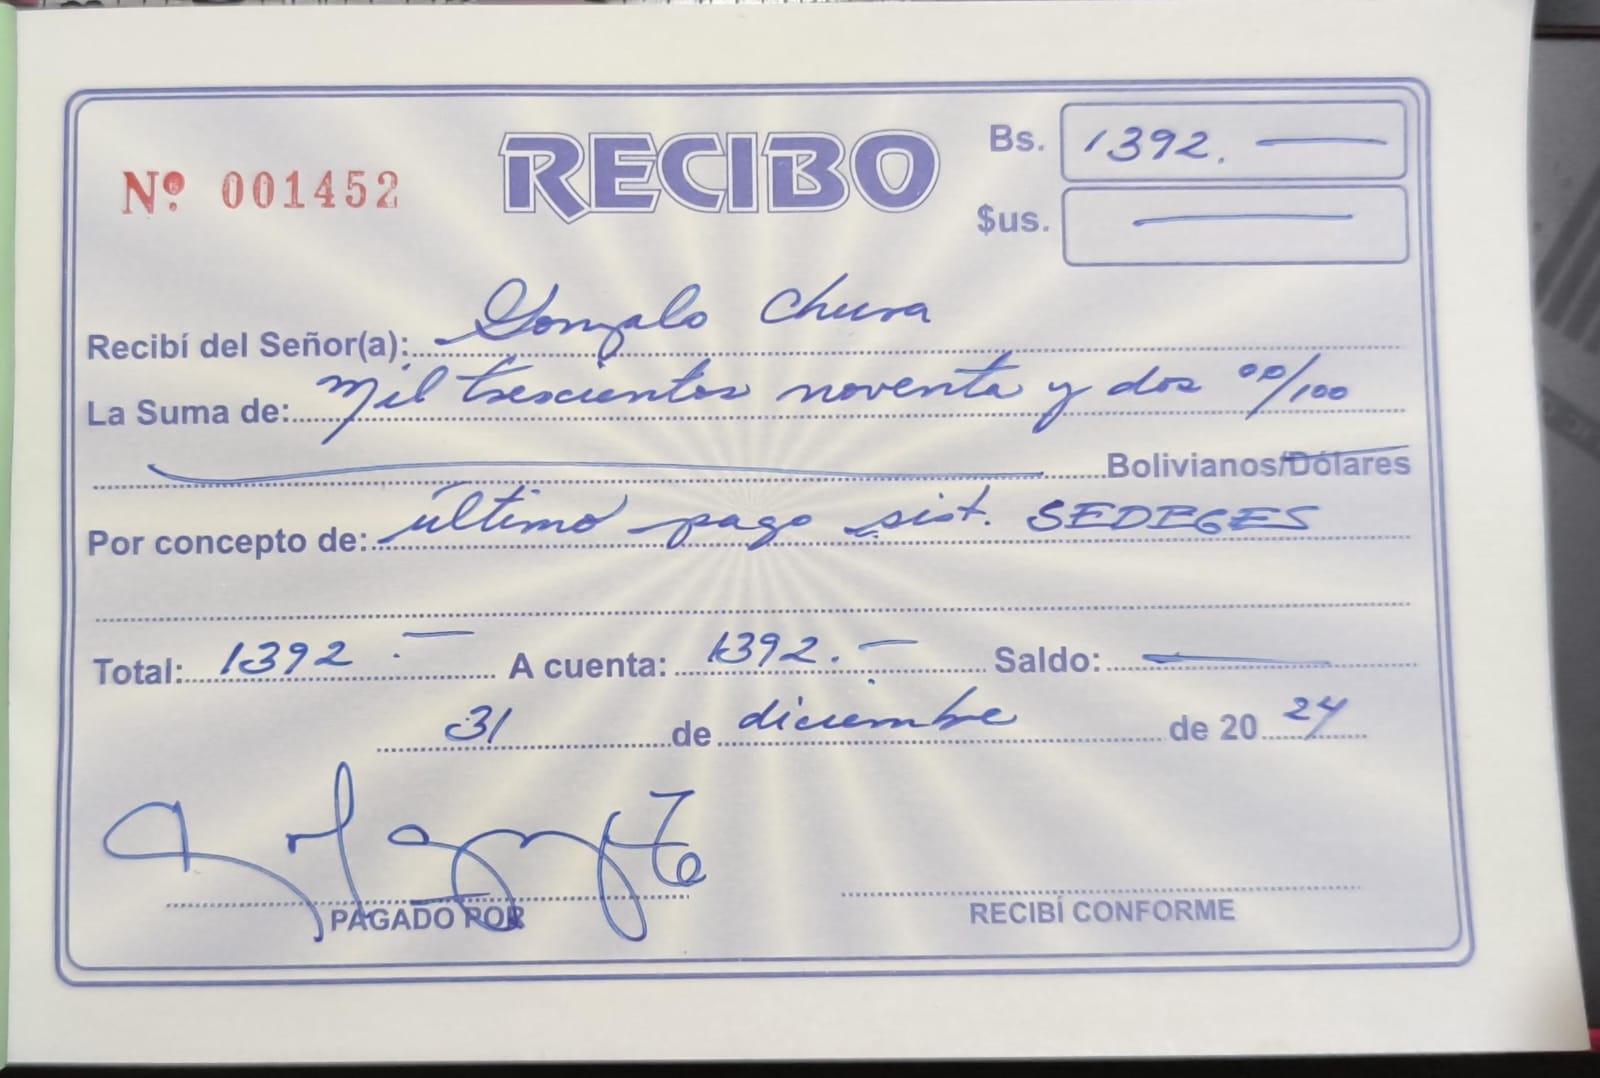 Nº 001452
RECIBO
Bs. 1392.
$us.
Recibí del Señor(a): Gonzalo Chura
La Suma de: Mil trescientos noventa y dos 00/100
Bolivianos/Dólares
Por concepto de: último pago sist. SEDEGES
Total: 1392.- A cuenta: 1392.- Saldo:
31 de diciembre de 2024
PAGADO POR
RECIBÍ CONFORME